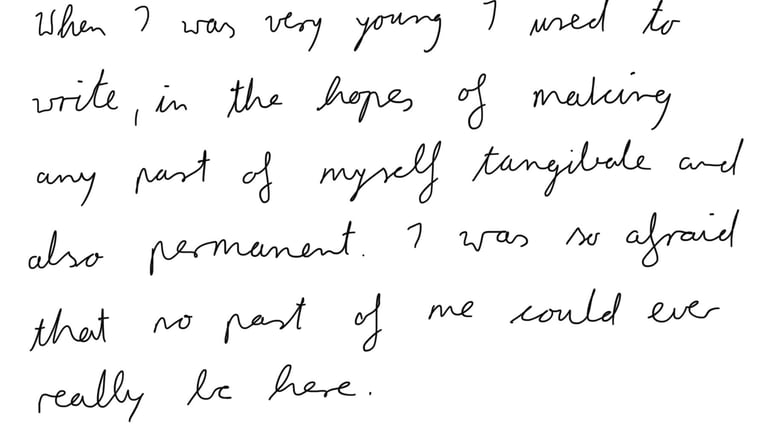 When I was very young I used to
write, in the hopes of making
any part of myself tangibale and
also permanent. I was so afraid
that no part of me could ever
really be here.